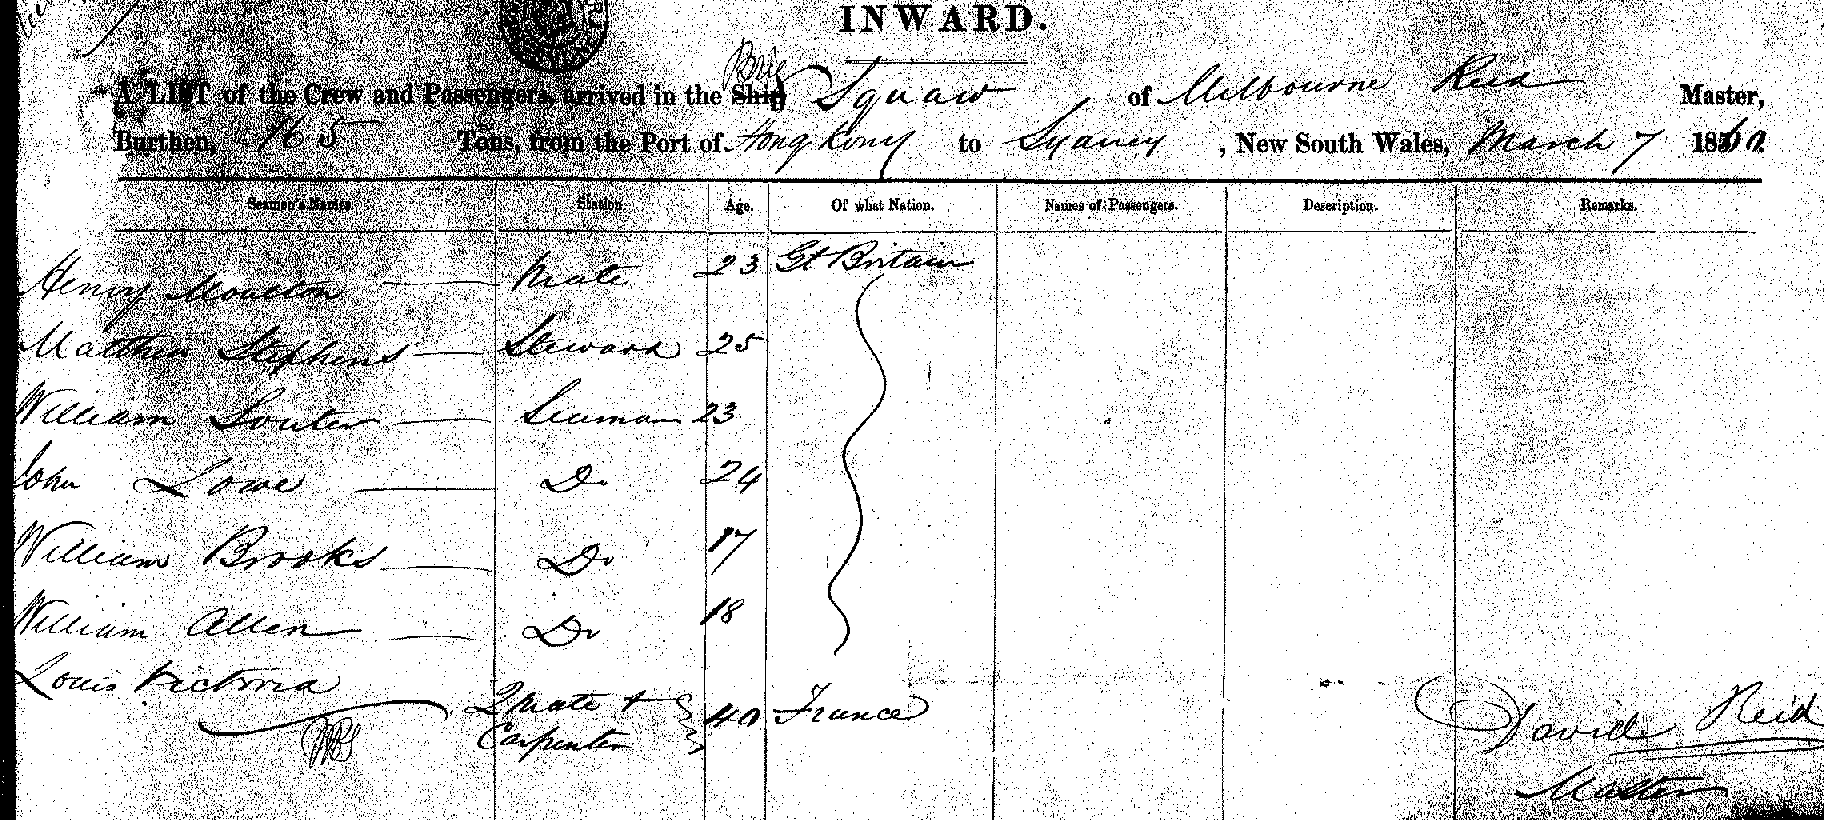 INWARD.
A LIST of the Crew and Passengers, arrived in the Ship Brig Squaw of Melbourne Reid Master,
Burthen, Tons, from the Port of Hong Kong to Sydney, New South Wales, March 7 1860
Seamen's Names. Station. Age. Of what Nation. Names of Passengers. Description. Remarks.
Henry Moulton Mate 23 Gt Britain
Matthew Stephens Steward 25
William Souter Seaman 23
John Lowe Do 24
William Brooks Do 17
William Allen Do 18
Louis Victoria 2 Mate + Carpenter 40 France
David Reid
Master